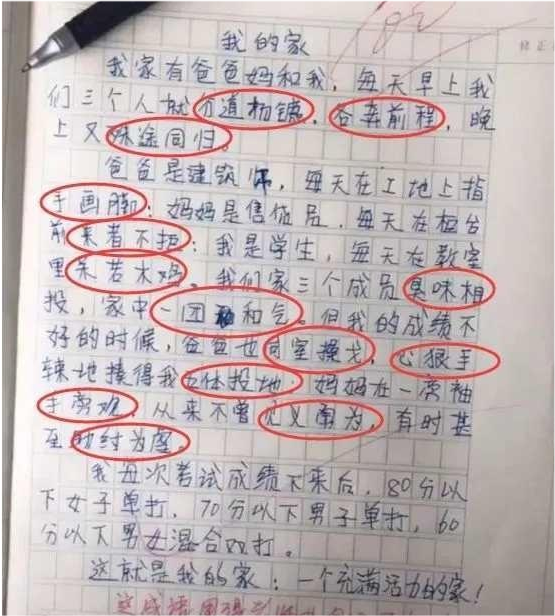 我的家
我家有爸爸妈和我，每天早上我
们三个人就分道扬镳，各奔前程，晚
上又殊途同归。
爸爸是建筑师，每天在工地上指
手画脚；妈妈是售货员，每天在柜台
前来者不拒；我是学生，每天在教室
里呆若木鸡。我们家三个成员臭味相
投，家中一团和气。但我的成绩不
好的时候，爸爸也同室操戈，心狠手
辣地揍得我五体投地。妈妈在一旁袖
手旁观，从来不曾见义勇为，有时甚
至助纣为虐。
我每次考试成绩下来后，80分以
下女子单打，70分以下男子单打，60
分以下男女混合双打。
这就是我的家：一个充满活力的家！
这成语用得